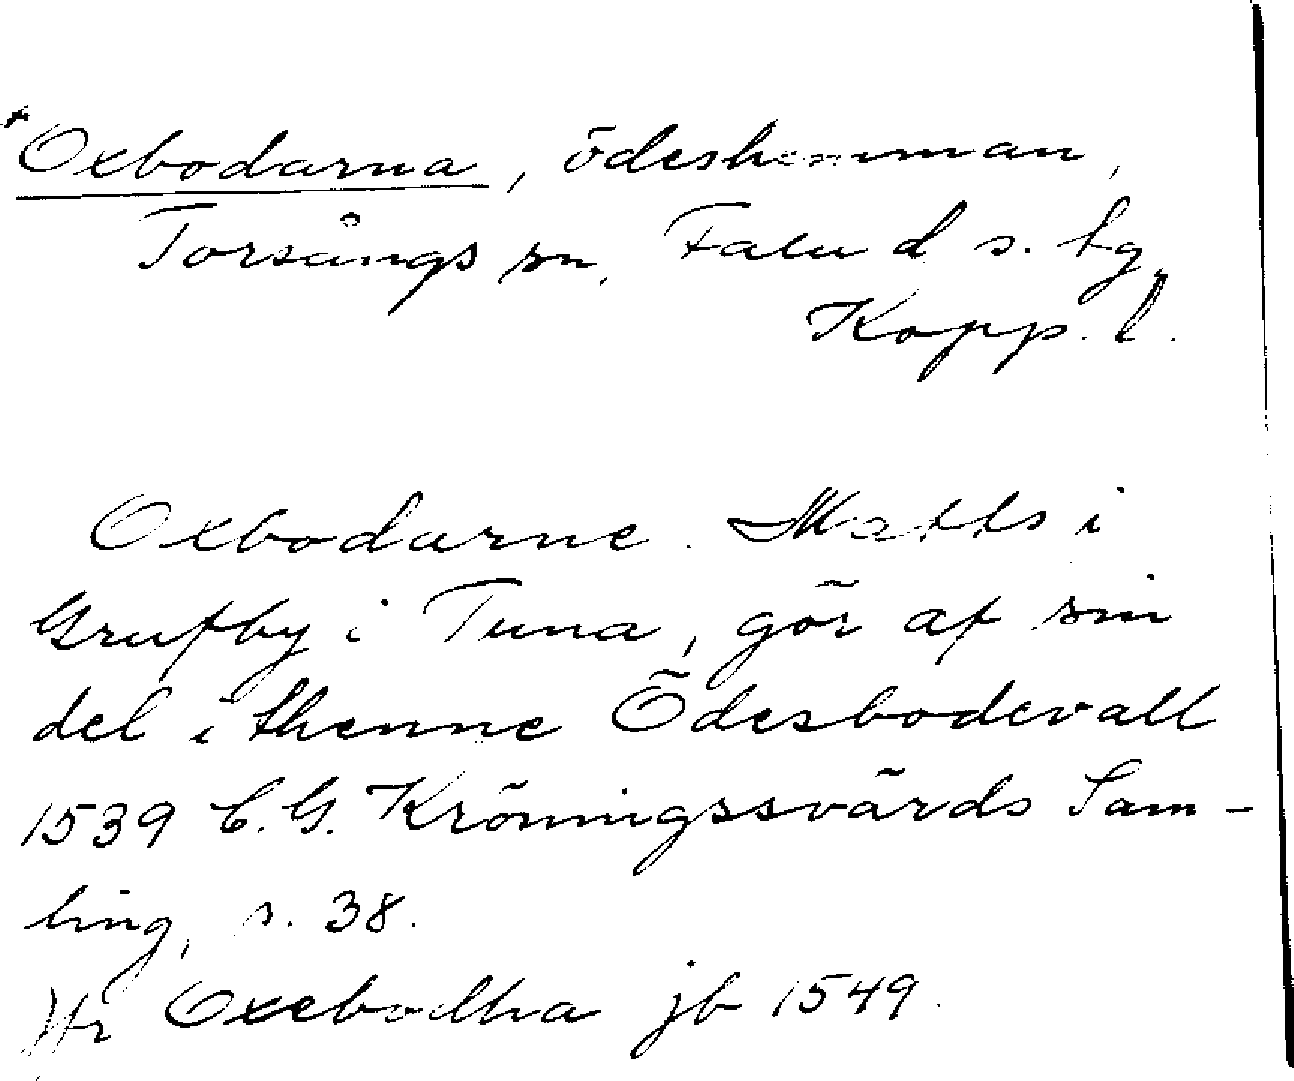 *Oxbodarna, ödeshemman,
Torsångs sn, Falu d s. hg,
Kopp. l.
Oxbodarne. Matts i
Grufby i Tuna, gör af sin
del i thenne Ödesbodevall
1539 C. G. Kröningssvärds Sam-
ling, s. 38.
Jfr Oxebodha jb 1549.